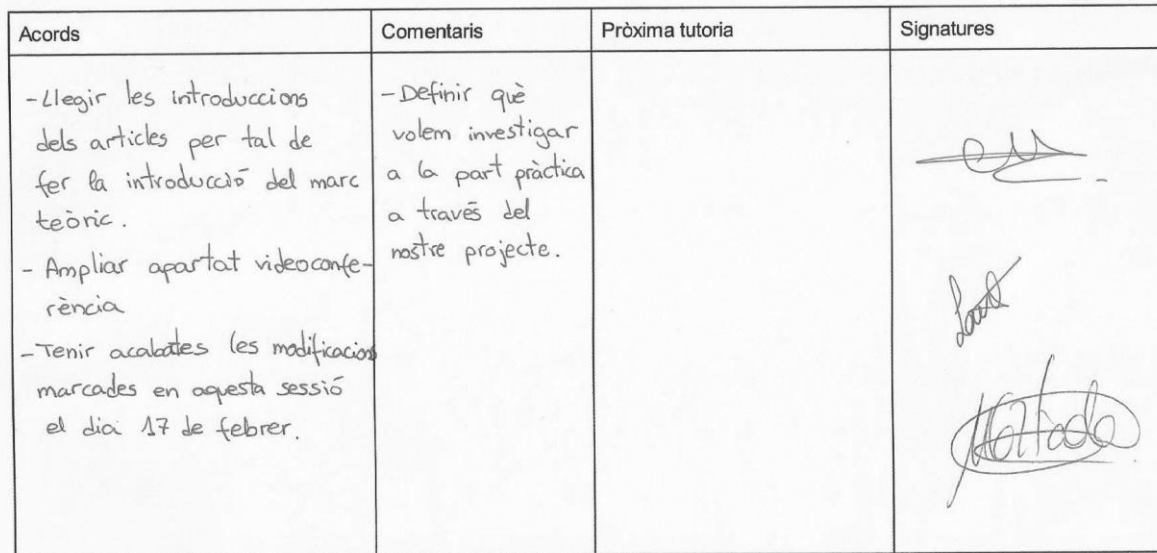 Acords
Comentaris
Pròxima tutoria
Signatures
-Llegir les introduccions
dels articles per tal de
fer la introducció del marc
teòric.
- Ampliar apartat videoconfe-
rència
-Tenir acabates les modificacions
marcades en aquesta sessió
el dia 17 de febrer.
-Definir què
volem investigar
a la part pràctica
a través del
nostre projecte.